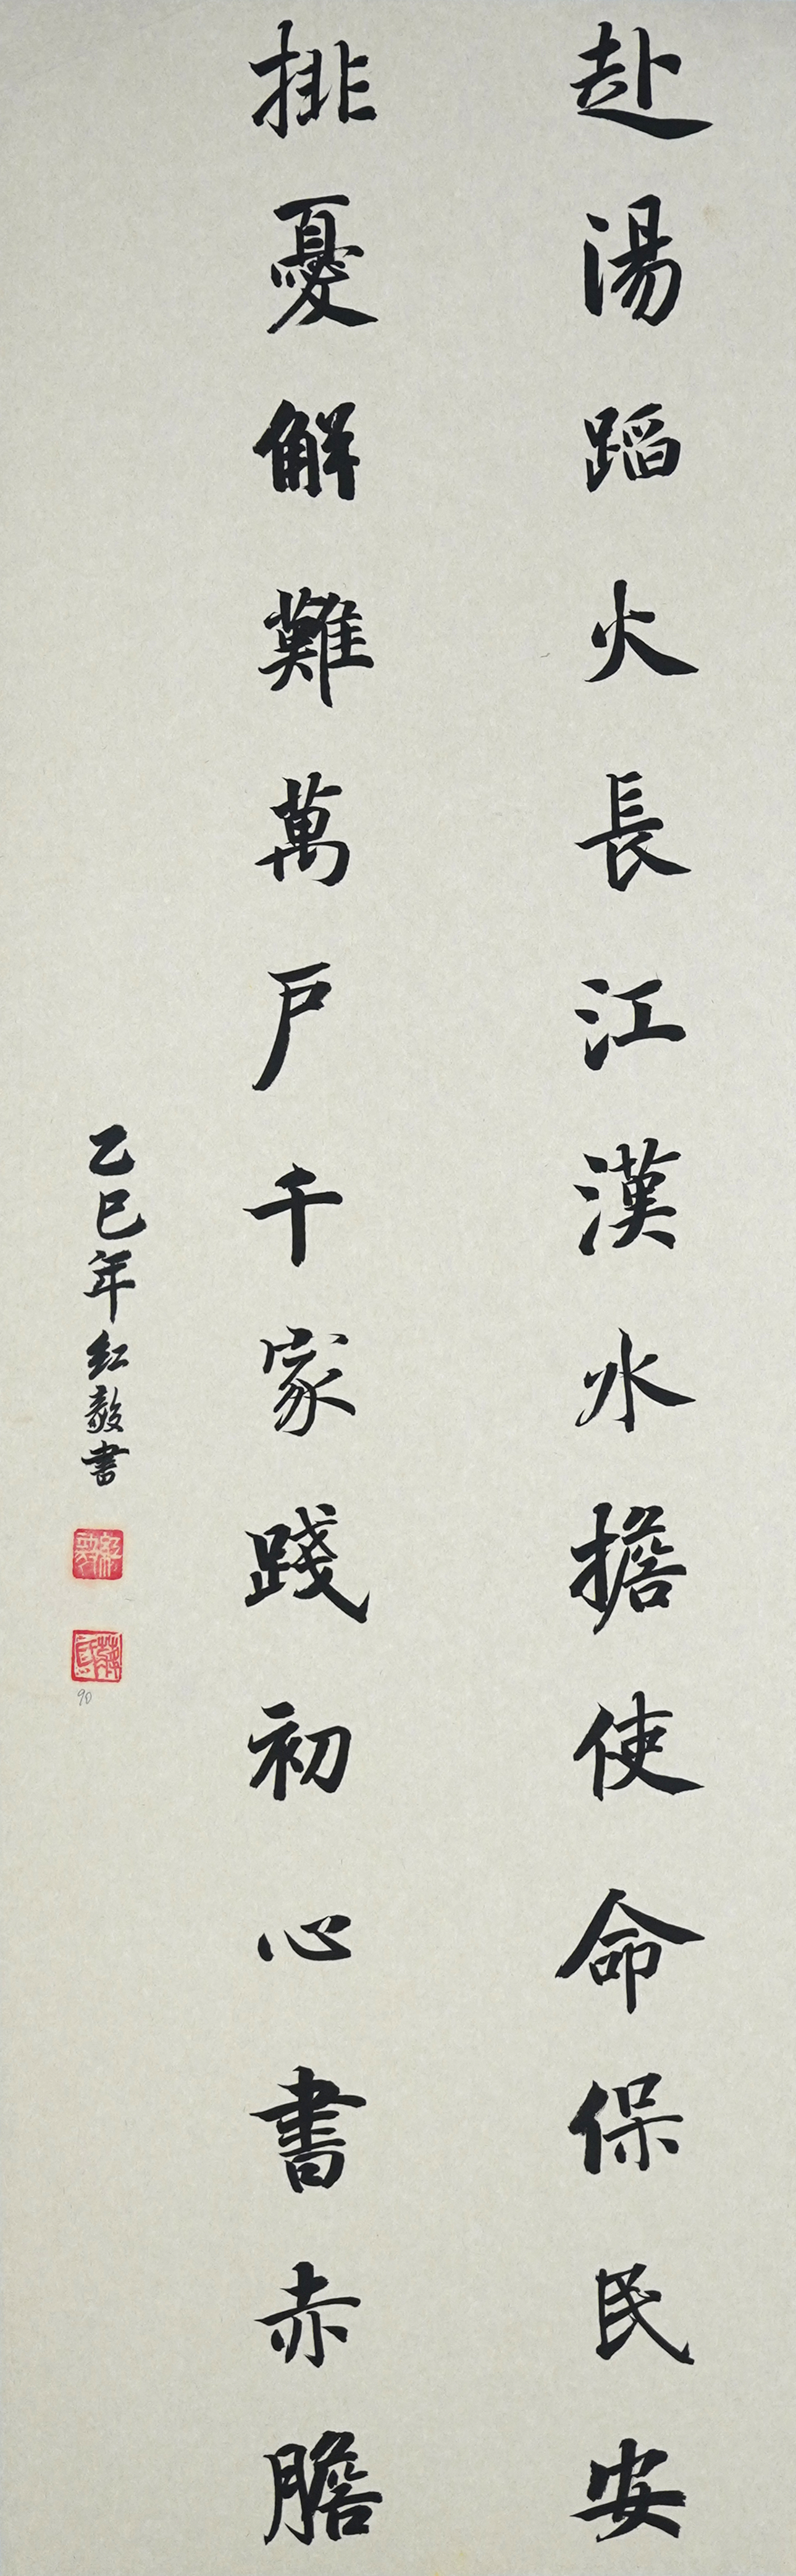 赴湯蹈火長江漢水擔使命保民安
排憂解難萬戶千家踐初心書赤膽
乙巳年紅毅書
90